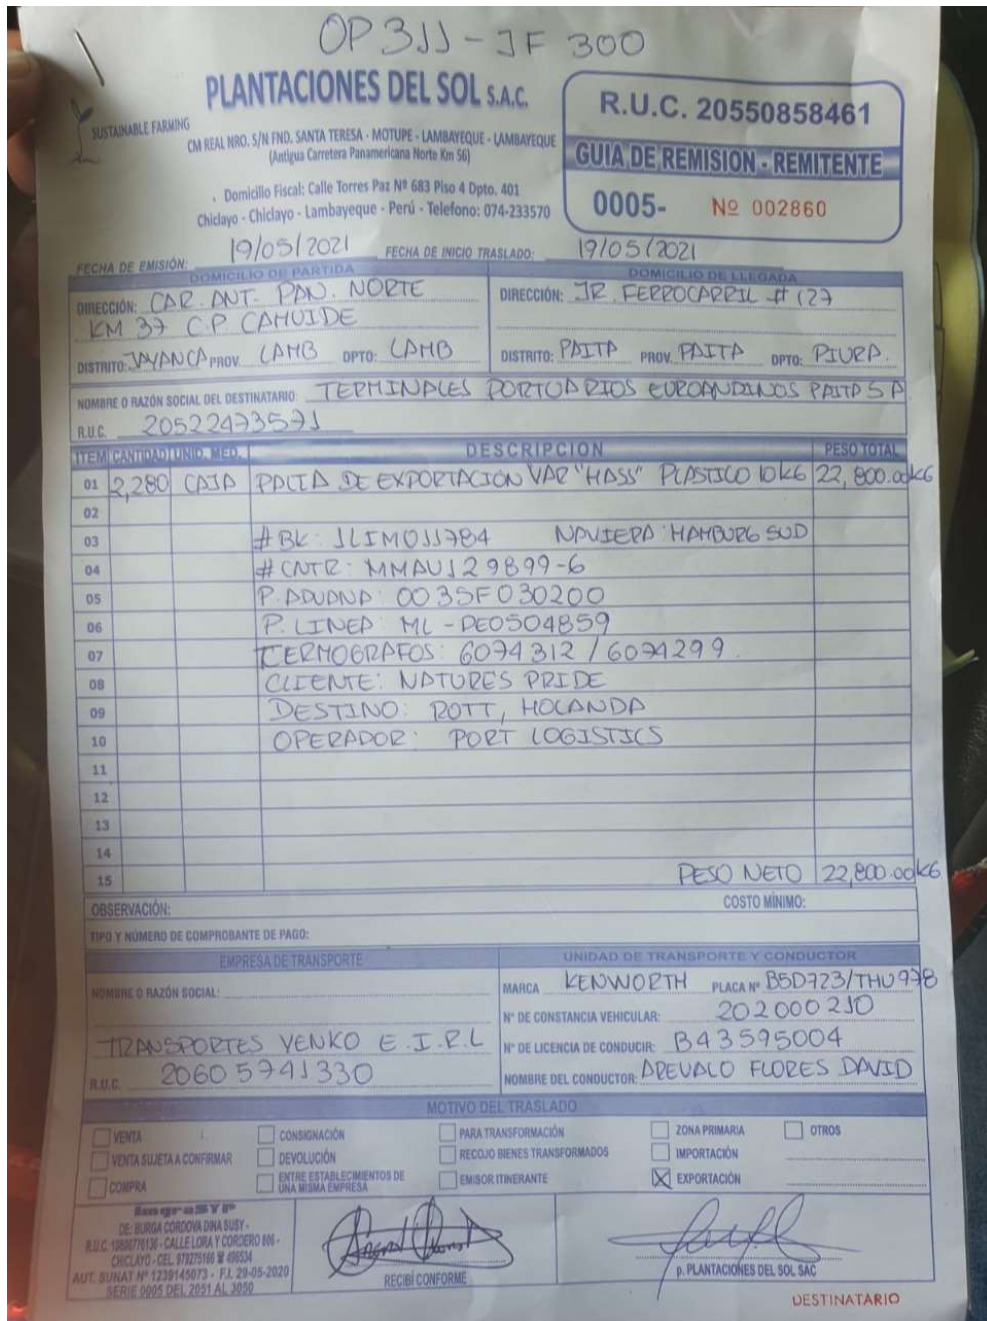 OP311-JF 300
PLANTACIONES DEL SOL S.A.C.
SUSTAINABLE FARMING
CM REAL NRO. S/N FND. SANTA TERESA - MOTUPE - LAMBAYEQUE - LAMBAYEQUE
(Antigua Carretera Panamericana Norte Km 56)
Domicilio Fiscal: Calle Torres Paz Nº 683 Piso 4 Dpto. 401
Chiclayo - Chiclayo - Lambayeque - Perú - Telefono: 074-233570
R.U.C. 20550858461
GUIA DE REMISION - REMITENTE
0005- Nº 002860
FECHA DE EMISIÓN: 19/05/2021 FECHA DE INICIO TRASLADO: 19/05/2021
DOMICILIO DE PARTIDA
DIRECCIÓN: CAR. ANT. PAN. NORTE
KM 37 C.P CAHUIDE
DISTRITO: JAYANCA PROV. LAMB DPTO: LAMB
DOMICILIO DE LLEGADA
DIRECCIÓN: JR. FERROCARRIL # 127
DISTRITO: PAITA PROV. PAITA DPTO: PIURA.
NOMBRE O RAZÓN SOCIAL DEL DESTINATARIO: TERMINALES PORTUARIOS EUROANDINOS PAITA S A
R.U.C. 20522473571
ITEM CANTIDAD UNID. MED. DESCRIPCION PESO TOTAL
01 2,280 CAJA PALTA DE EXPORTACION VAR "HASS" PLASTICO 10KG 22,800.00KG
02
03 #BK: 1LIM011784 NAVIERA: HAMBURG SUD
04 #CNTR: MMAU129899-6
05 P. ADUANA: 0035F030200
06 P. LINEA: ML-PE0504859
07 TERMOGRAFOS: 6074312 / 6074299.
08 CLIENTE: NATURES PRIDE
09 DESTINO: ROTT, HOLANDA
10 OPERADOR: PORT LOGISTICS
11
12
13
14
15 PESO NETO 22,800.00KG
OBSERVACIÓN: COSTO MÍNIMO:
TIPO Y NÚMERO DE COMPROBANTE DE PAGO:
EMPRESA DE TRANSPORTE
NOMBRE O RAZÓN SOCIAL:
TRANSPORTES YENKO E.I.R.L
R.U.C. 20605741330
UNIDAD DE TRANSPORTE Y CONDUCTOR
MARCA KENWORTH PLACA Nº B5D723/THU978
Nº DE CONSTANCIA VEHICULAR: 202000210
Nº DE LICENCIA DE CONDUCIR: B43595004
NOMBRE DEL CONDUCTOR: AREVALO FLORES DAVID
MOTIVO DEL TRASLADO
VENTA CONSIGNACIÓN PARA TRANSFORMACIÓN ZONA PRIMARIA OTROS
VENTA SUJETA A CONFIRMAR DEVOLUCIÓN RECOJO BIENES TRANSFORMADOS IMPORTACIÓN
COMPRA ENTRE ESTABLECIMIENTOS DE UNA MISMA EMPRESA EMISOR ITINERANTE X EXPORTACIÓN
ImgraSYP
DE: BURGA CORDOVA DINA SUSY -
CALLE LORA Y CORDERO 806 -
CHICLAYO - CEL. 979275166 ☎ 498534
AUT. SUNAT Nº 1239145073 - F.I. 29-05-2020
SERIE 0005 DEL 2051 AL 3050
RECIBÍ CONFORME
p. PLANTACIONES DEL SOL SAC
DESTINATARIO